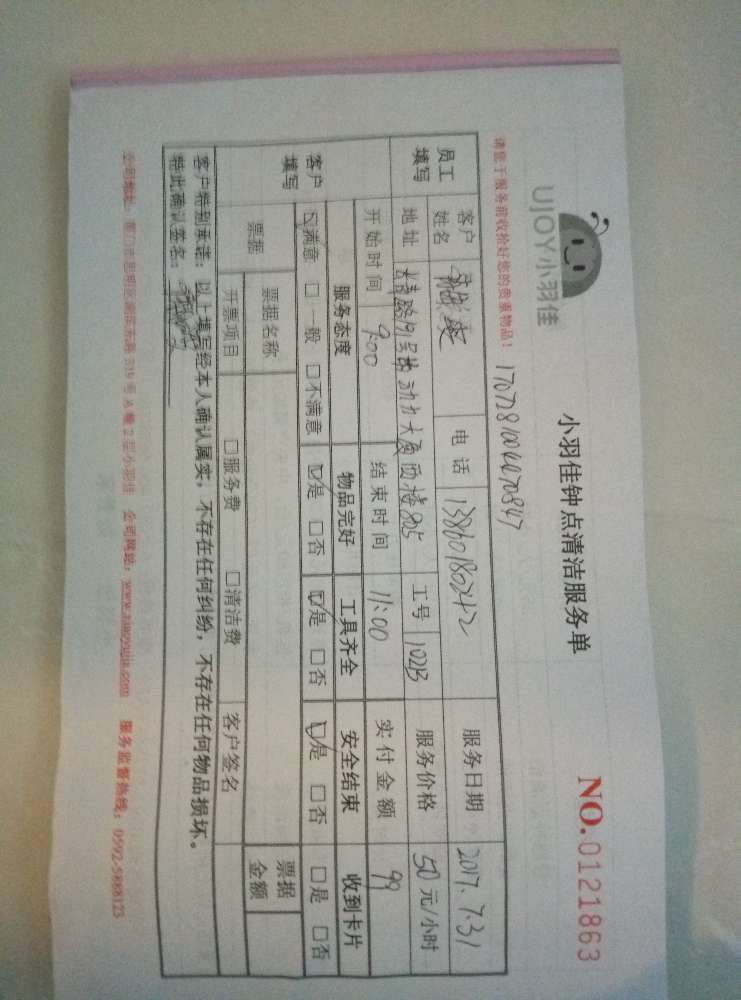 UJOY小羽佳
小羽佳钟点清洁服务单
NO.0121863
请您于服务前收拾好您的贵重物品!
1707281004070847
员工填写
客户姓名
电话 13860180242
服务日期 2017.7.31
地址
动力大厦西楼805
工号 102B
服务价格 50元/小时
开始时间 9:00
结束时间 11:00
实付金额 99
客户填写
服务态度 物品完好 工具齐全 安全结束 收到卡片
☑满意 □一般 □不满意 ☑是 □否 ☑是 □否 ☑是 □否 □是 □否
票据
票据名称
票据金额
开票项目 □服务费 □清洁费 客户签名
客户特别承诺:以上填写经本人确认属实,不存在任何纠纷,不存在任何物品损坏。
特此确认签名:
公司地址:厦门市思明区 319号A幢2层小羽佳 公司网站:www.xiaoyujia.com 服务监督热线:0592-5888123